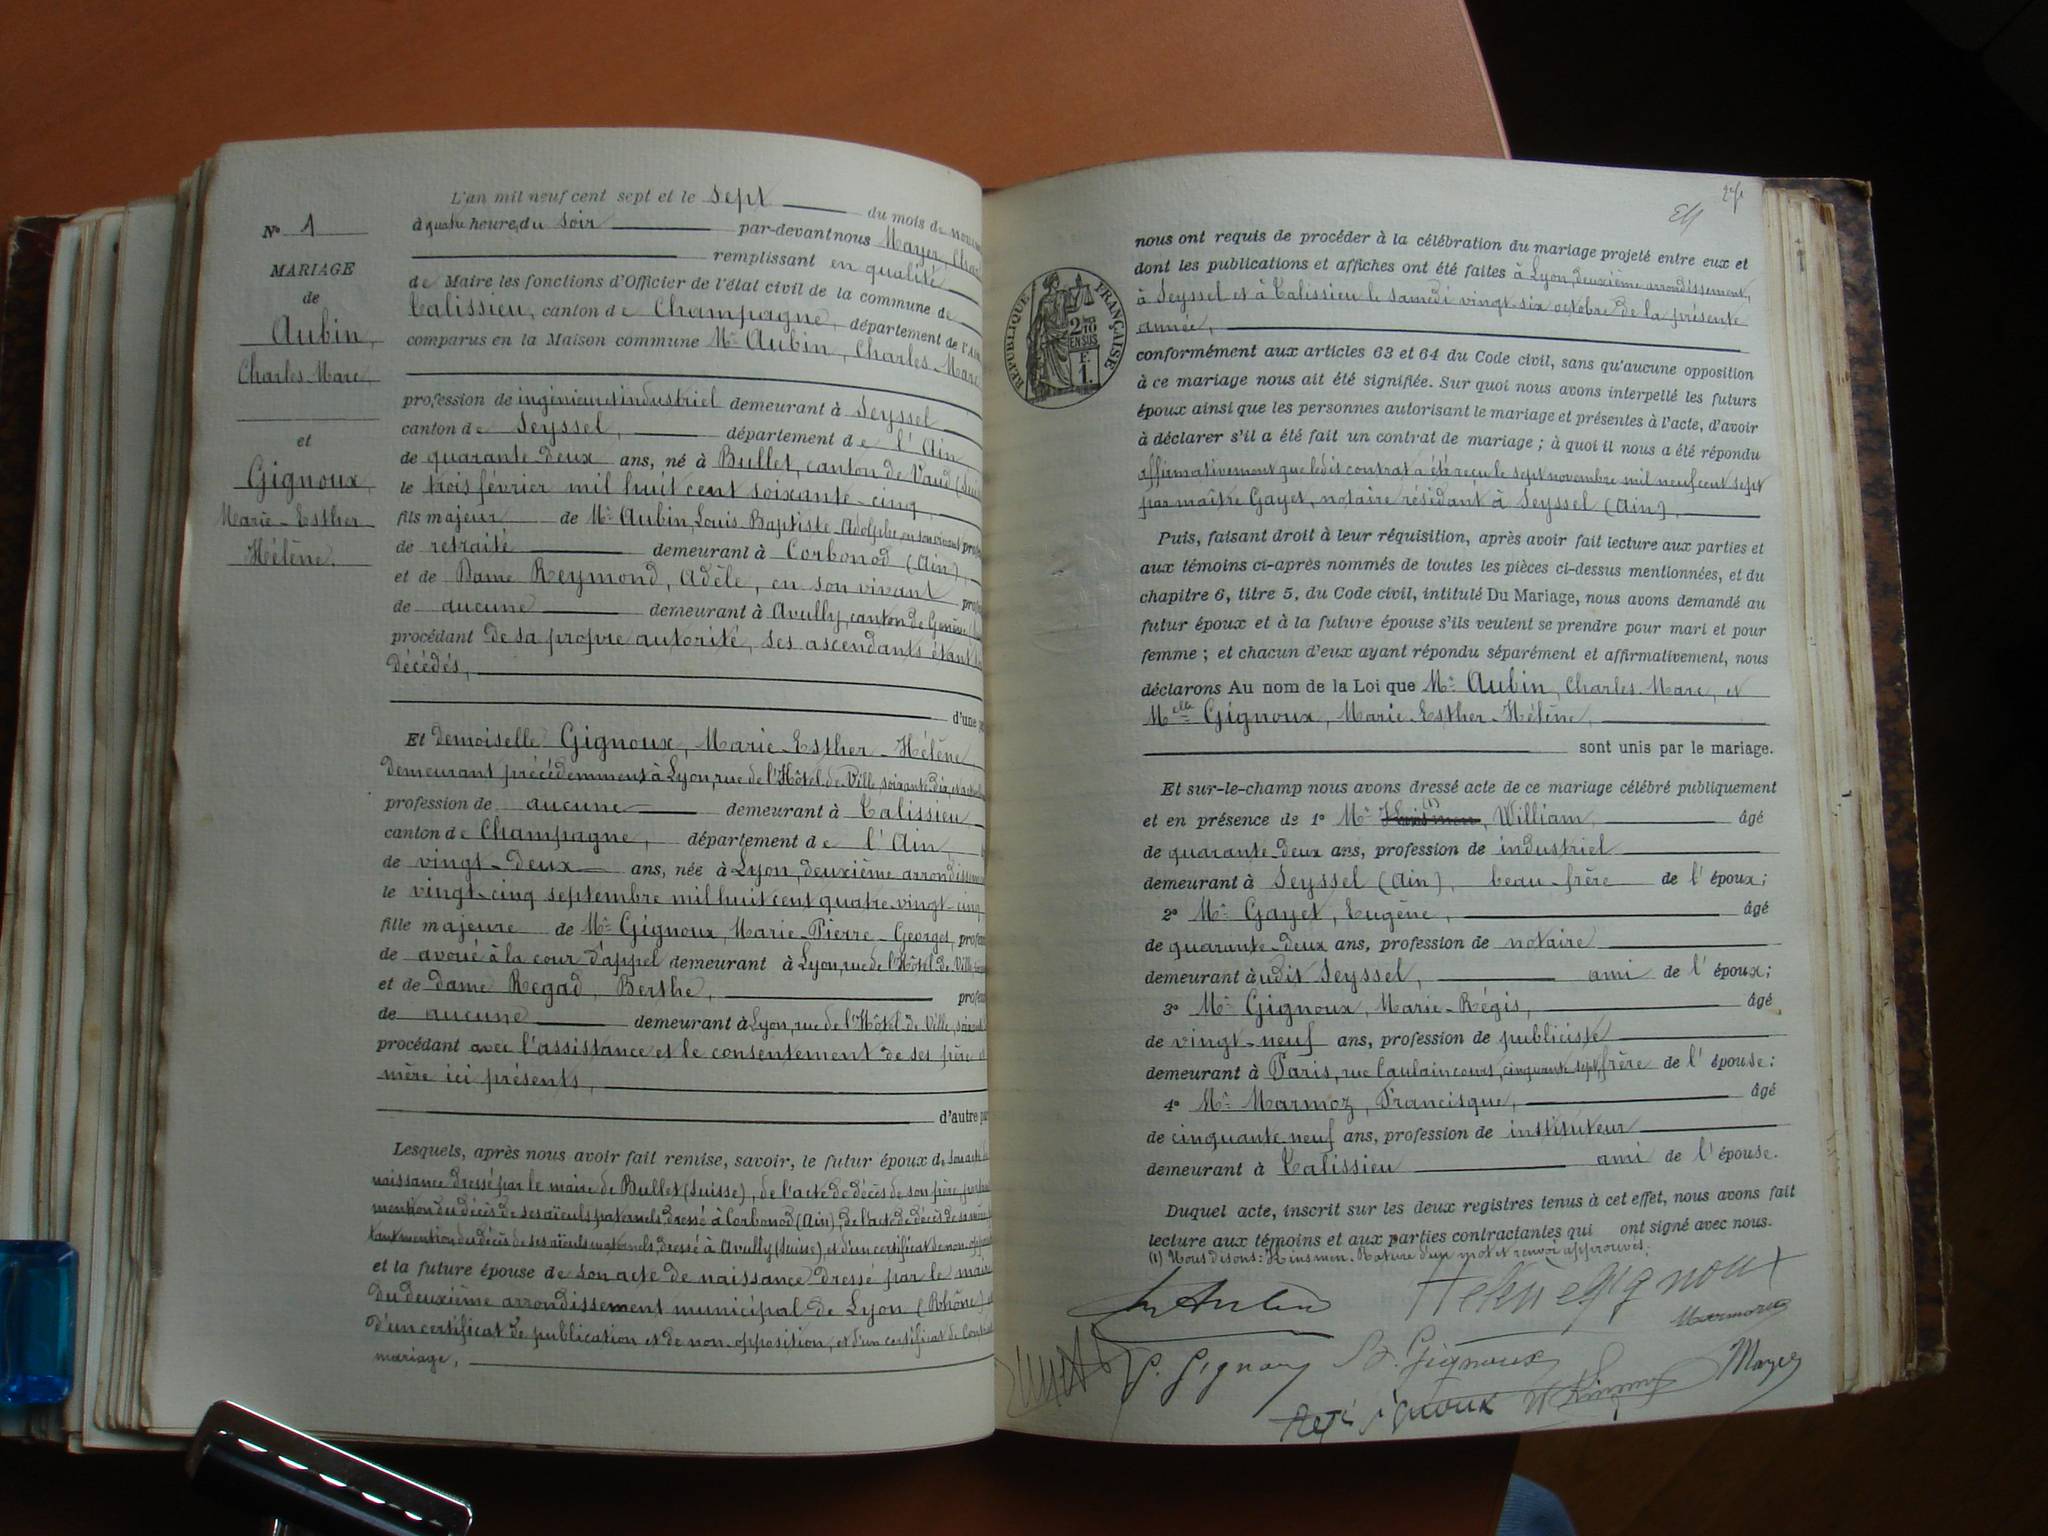 N° 1
MARIAGE
de
Aubin,
Charles Marc,
et
Gignoux,
Marie-Esther
Hélène.
L'an mil neuf cent sept et le sept du mois de
à quatre heures du soir par-devant nous Mayer,
remplissant en qualité
de Maire les fonctions d'Officier de l'état civil de la commune de
Talissieu, canton de Champagne, département de l'Ain
comparus en la Maison commune Mr Aubin, Charles-Marc,
profession de ingénieur et industriel demeurant à Seyssel
canton de Seyssel, département de l'Ain
de quarante-deux ans, né à Bullet, canton de Vaud
le trois février mil huit cent soixante-cinq,
fils majeur de Mr Aubin, Louis Baptiste Adolphe, en son vivant
de retraité demeurant à Corbonod (Ain),
et de Dame Reymond, Adèle, en son vivant
de aucune demeurant à Avully, canton de Genève
procédant de sa propre autorité, ses ascendants étant
décédés,
d'une
Et demoiselle Gignoux, Marie-Esther-Hélène
demeurant précédemment à Lyon, rue de l'Hôtel de Ville, soixante-dix,
profession de aucune demeurant à Talissieu,
canton de Champagne, département de l'Ain
de vingt-deux ans, née à Lyon, deuxième
le vingt-cinq septembre mil huit cent quatre-vingt-cinq
fille majeure de Mr Gignoux, Marie-Pierre-Georges,
de avoué à la cour d'appel demeurant à Lyon, rue de l'Hôtel de Ville
et de dame Regad, Berthe,
de aucune demeurant à Lyon, rue de l'Hôtel de Ville,
procédant avec l'assistance et le consentement de ses père et
mère ici présents,
d'autre
Lesquels, après nous avoir fait remise, savoir, le futur époux de son acte de
naissance dressé par le maire de Bullet (Suisse), de l'acte de décès de son père,
mention du décès de ses aïeuls paternels dressé à Corbonod (Ain), de l'acte de décès de sa mère
mention du décès de ses aïeuls maternels, dressé à Avully (Suisse) et d'un certificat de non-
et la future épouse de son acte de naissance dressé par le maire
du deuxième arrondissement municipal de Lyon (Rhône)
d'un certificat de publication et de non-opposition, et d'un certificat de
mariage,
RÉPUBLIQUE FRANÇAISE
2/10 EN SUS
1.
nous ont requis de procéder à la célébration du mariage projeté entre eux et
dont les publications et affiches ont été faites à Lyon, deuxième arrondissement,
à Seyssel et à Talissieu le samedi vingt-six octobre de la présente
année,
conformément aux articles 63 et 64 du Code civil, sans qu'aucune opposition
à ce mariage nous ait été signifiée. Sur quoi nous avons interpellé les futurs
époux ainsi que les personnes autorisant le mariage et présentes à l'acte, d'avoir
à déclarer s'il a été fait un contrat de mariage ; à quoi il nous a été répondu
affirmativement que ledit contrat a été reçu le sept novembre mil neuf cent sept
par maître Gayet, notaire résidant à Seyssel (Ain),
Puis, faisant droit à leur réquisition, après avoir fait lecture aux parties et
aux témoins ci-après nommés de toutes les pièces ci-dessus mentionnées, et du
chapitre 6, titre 5, du Code civil, intitulé Du Mariage, nous avons demandé au
futur époux et à la future épouse s'ils veulent se prendre pour mari et pour
femme ; et chacun d'eux ayant répondu séparément et affirmativement, nous
déclarons Au nom de la Loi que Mr Aubin, Charles-Marc, et
Melle Gignoux, Marie-Esther-Hélène,
sont unis par le mariage.
Et sur-le-champ nous avons dressé acte de ce mariage célébré publiquement
et en présence de 1° Mr (1), William, âgé
de quarante-deux ans, profession de industriel
demeurant à Seyssel (Ain), beau-frère de l'époux ;
2° Mr Gayet, Eugène, âgé
de quarante-deux ans, profession de notaire
demeurant à udit Seyssel, ami de l'époux ;
3° Mr Gignoux, Marie-Régis, âgé
de vingt-neuf ans, profession de publiciste
demeurant à Paris, rue Caulaincourt, cinquante-sept, frère de l'épouse ;
4° Mr Marmoz, Francisque, âgé
de cinquante-neuf ans, profession de instituteur
demeurant à Talissieu ami de l'épouse.
Duquel acte, inscrit sur les deux registres tenus à cet effet, nous avons fait
lecture aux témoins et aux parties contractantes qui ont signé avec nous.
(1) Nous disons : Kinsmen. Rature d'un mot et renvoi approuvés.
Aubin Hélène Gignoux
Marmoz
G. Gignoux B. Gignoux Mayer
Régis Gignoux W Kinsmen